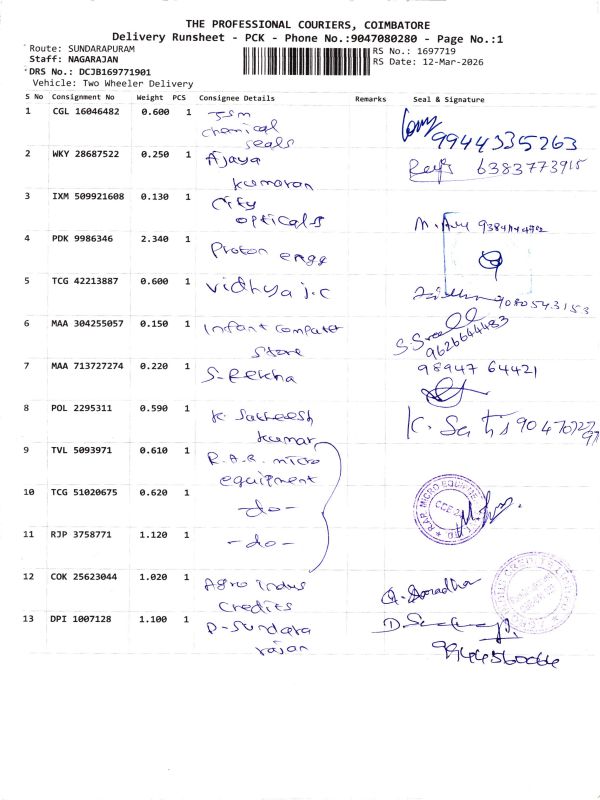 THE PROFESSIONAL COURIERS, COIMBATORE
Delivery Runsheet - PCK - Phone No.:9047080280 - Page No.:1
Route: SUNDARAPURAM
RS No.: 1697719
Staff: NAGARAJAN
RS Date: 12-Mar-2026
DRS No.: DCJB169771901
Vehicle: Two Wheeler Delivery
S No Consignment No Weight PCS Consignee Details Remarks Seal & Signature
1 CGL 16046482 0.600 1 JSM
chemical
seals
9944335263
2 WKY 28687522 0.250 1 Ajaya
kumaran
6383773915
3 IXM 509921608 0.130 1 City
opticals
4 PDK 9986346 2.340 1 Proton engg
5 TCG 42213887 0.600 1 vidhya j.c
9080543153
6 MAA 304255057 0.150 1 Infant computer
store
9626644483
7 MAA 713727274 0.220 1 S. Rekha
98947 64421
8 POL 2295311 0.590 1 K. Satheesh
kumar
9 TVL 5093971 0.610 1 R.A.R. micro
equipment
10 TCG 51020675 0.620 1 -do-
11 RJP 3758771 1.120 1 -do-
12 COK 25623044 1.020 1 Agro indus
credits
13 DPI 1007128 1.100 1 D-Sundara
rajan